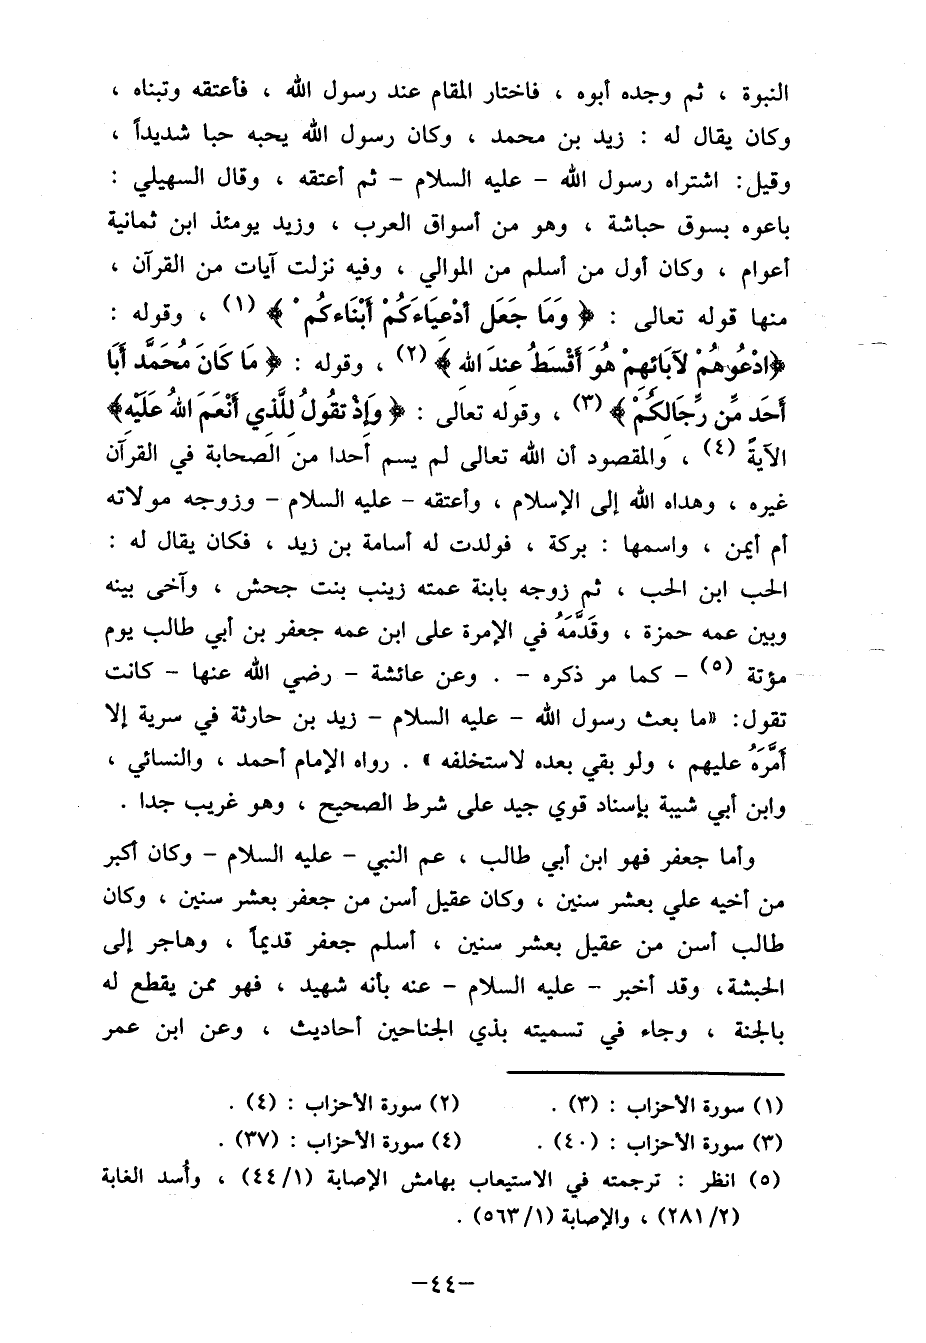 النبوة ، ثم وجده أبوه ، فاختار المقام عند رسول الله ، فأعتقه وتبناه ،
وكان يقال له : زيد بن محمد ، وكان رسول الله يحبه حبا شديداً ،
وقيل: اشتراه رسول الله – عليه السلام – ثم أعتقه ، وقال السهيلي :
باعوه بسوق حباشة ، وهو من أسواق العرب ، وزيد يومئذ ابن ثمانية
أعوام ، وكان أول من أسلم من الموالي ، وفيه نزلت آيات من القرآن ،
منها قوله تعالى : ﴿ وَمَا جَعَل أدْعِيَاءَكُمْ أَبْنَاءكُم ْ ﴾ (١) ، وقوله :
﴿ادْعُوهُمْ لآبَائِهِمْ هُوَ أقْسَطُ عندَ الله ﴾ (٢) ، وقوله : ﴿ مَا كَانَ مُحَمَّد أَبَا
أَحَد مِّن رِّجَالكُمْ ﴾ (٣) ، وقوله تعالى : ﴿ وَإِذْ تقُولُ للَّذِي أَنْعَمَ اللهُ عَلَيْه﴾
الآيةَ (٤) ، والمقصود أن الله تعالى لم يسم أحدا من الصحابة في القرآن
غيره ، وهداه الله إلى الإسلام ، وأعتقه – عليه السلام – وزوجه مولاته
أم أيمن ، واسمها : بركة ، فولدت له أسامة بن زيد ، فكان يقال له :
الحب ابن الحب ، ثم زوجه بابنة عمته زينب بنت جحش ، وآخى بينه
وبين عمه حمزة ، وقَدَّمَهُ في الإمرة على ابن عمه جعفر بن أبي طالب يوم
مؤتة (٥) – كما مر ذكره – . وعن عائشة – رضي الله عنها – كانت
تقول: «ما بعث رسول الله – عليه السلام – زيد بن حارثة في سرية إلا
أمَّرَهُ عليهم ، ولو بقي بعده لاستخلفه » . رواه الإمام أحمد ، والنسائي ،
وابن أبي شيبة بإسناد قوي جيد على شرط الصحيح ، وهو غريب جدا .
وأما جعفر فهو ابن أبي طالب ، عم النبي – عليه السلام – وكان أكبر
من أخيه علي بعشر سنين ، وكان عقيل أسن من جعفر بعشر سنين ، وكان
طالب أسن من عقيل بعشر سنين ، أسلم جعفر قديماً ، وهاجر إلى
الحبشة، وقد أخبر – عليه السلام – عنه بأنه شهيد ، فهو ممن يقطع له
بالجنة ، وجاء في تسميته بذي الجناحين أحاديث ، وعن ابن عمر
(١) سورة الأحزاب : (٣) . (٢) سورة الأحزاب : (٤) .
(٣) سورة الأحزاب : (٤٠) . (٤) سورة الأحزاب : (٣٧) .
(٥) انظر : ترجمته في الاستيعاب بهامش الإصابة (١/ ٤٤) ، وأُسد الغابة
(٢/ ٢٨١) ، والإصابة (١/ ٥٦٣) .
–٤٤–